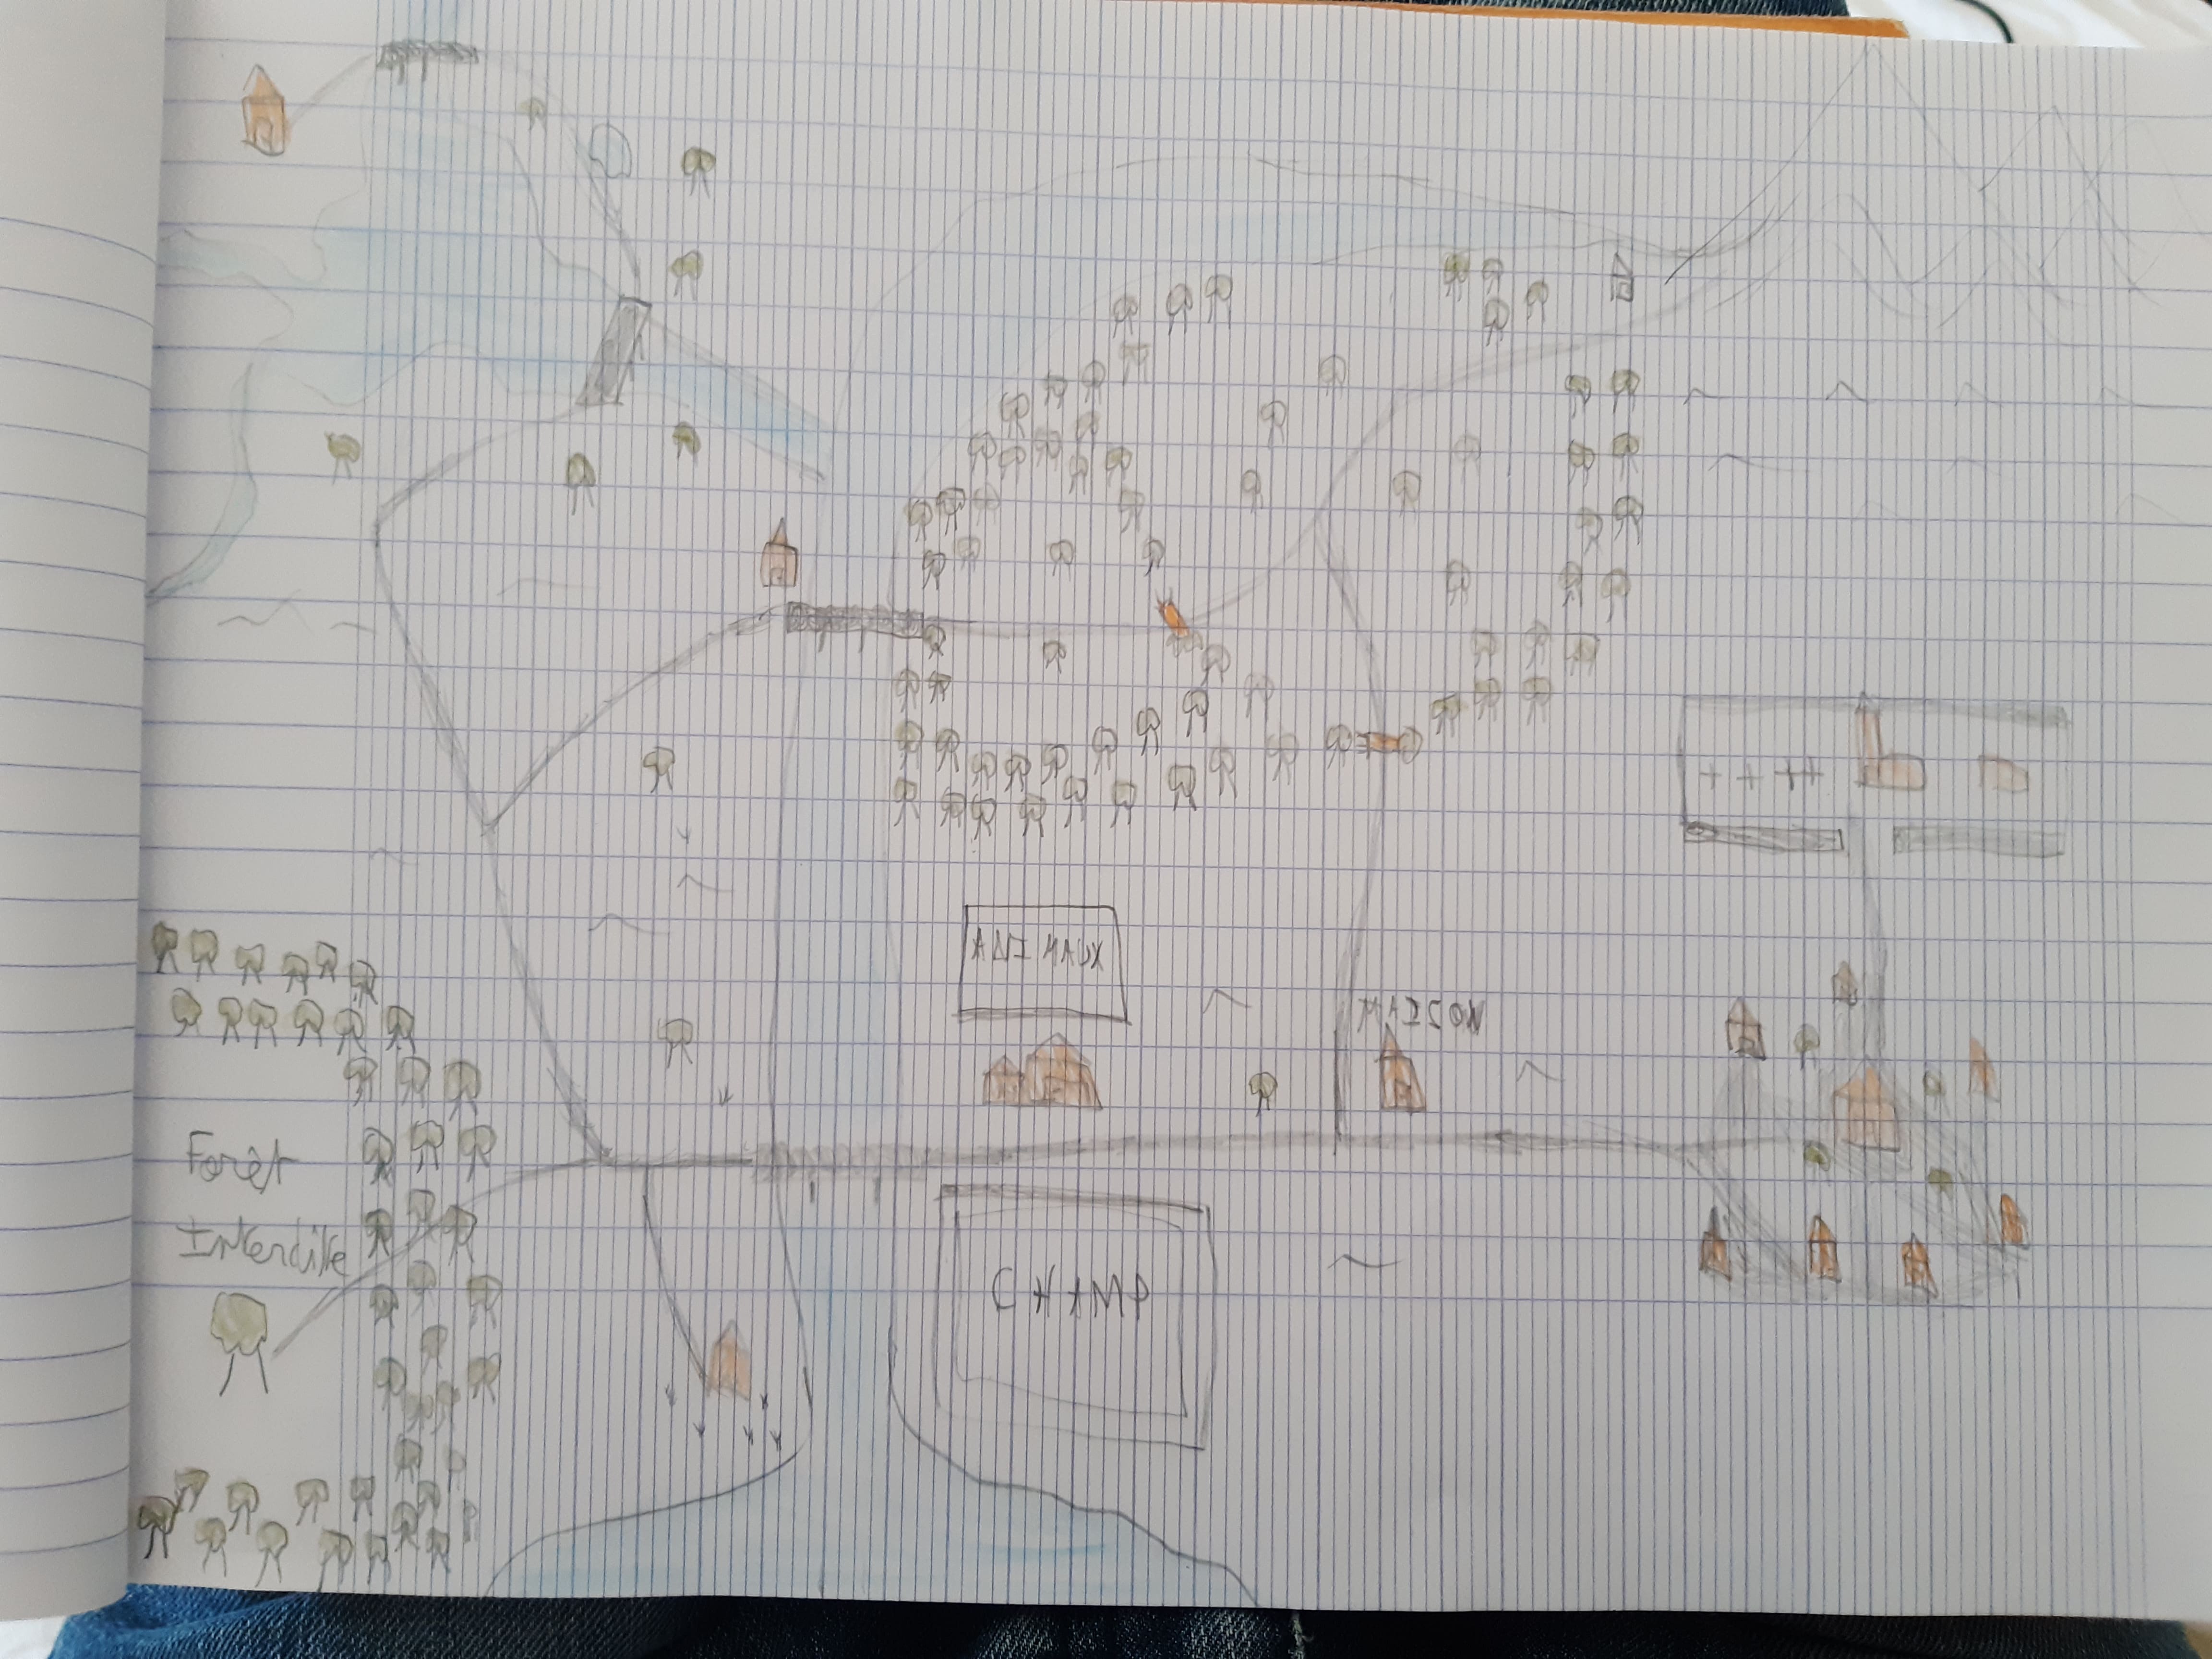 ANIMAUX
MAISON
Forêt
Interdite
CHAMP